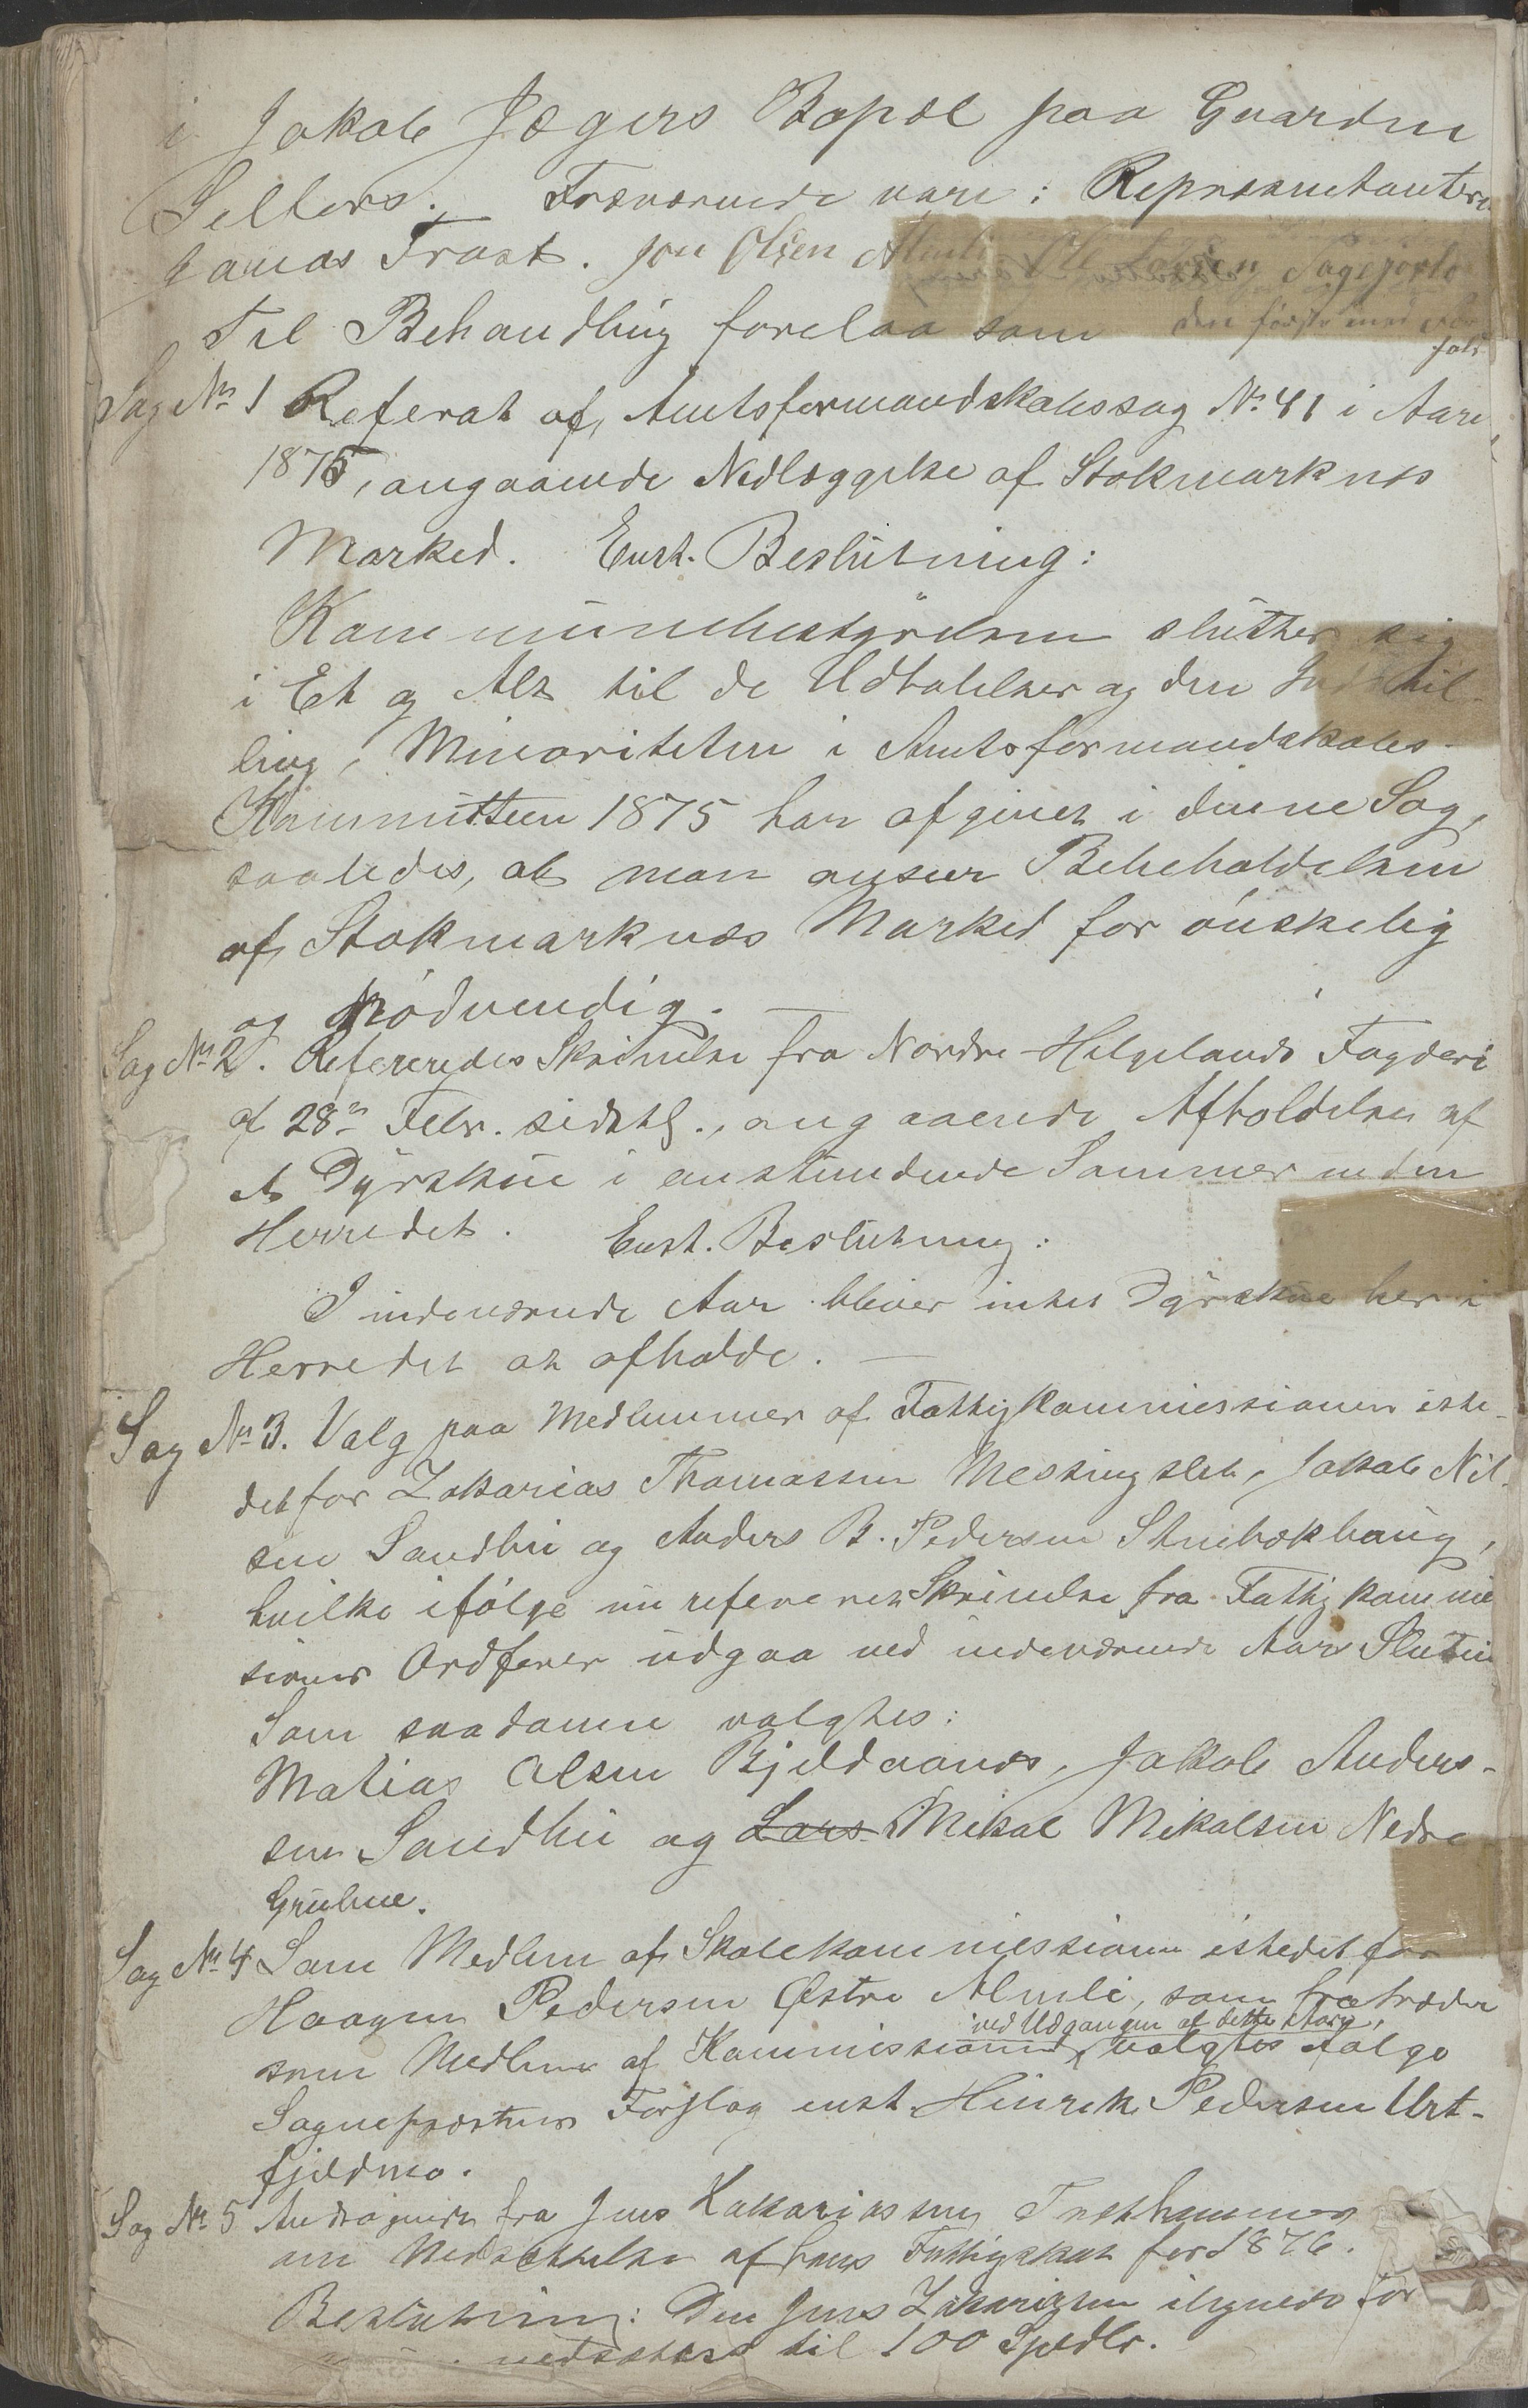 i Jakob Jægers Bopæl paa Gaarden
Selfors. Fraværende vare: Repræsentanterne
Jonas Frost. Jon Olsen Almli Ole Larsen
Til Behandling forelaa som den første med For-
fald
Sag No 1 Referat af Amtsformandskabssag No 41 i Aaret
1875, angaaende Nedlæggelse af Stokmarknes
Marked. Enst. Beslutning:
Kommunebestyrelsen slutter sig
i Et og Alt til de Udtalelser og den Indstil-
ling, Minoriteten i Amtsformandskabs-
Kommitteen 1875 har afgivet i denne Sag,
saaledes, at man anseer Bibeholdelsen
af Stokmarknes Marked for ønskelig
og nødvendig. —
Sag No 2. Refereredes Skrivelse fra Nordre Helgelands Fogderi
af 28de Febr. sidstl., angaaende Afholdelse af
et Dyrskue i anstundende Sommer inden
Herredet. Enst. Beslutning:
I indeværende Aar bliver intet Dyrskue her i
Herredet at afholde. —
Sag No 3. Valg paa Medlemmer af Fattigkommissionen iste-
detfor Zakarias Thomassen Messingslet, Jakob Nil-
sen Sandhei og Anders B. Pedersen Stenbækhaug,
hvilke ifølge nu refereret Skrivelse fra Fattigkommis
sionens Ordfører udgaa ved indeværende Aars Slutning
Som saadanne valgtes:
Matias Olsen Bjeldaanes, Jakob Anders-
sen Sandhei og Lars Mikal Mikalsen Nedre
Grubne.
Sag No 4 Som Medlem af Skolekommissionen istedet for
Haagen Pedersen Østre Almli, som fratræder
ved Udgangen af dette Aar,
som Medlem af Kommissionen, valgtes ifølge
Sognepræstens Forslag enst. Hinrik Pedersen Urt-
fjeldmo.
Sag No 5 Andragende fra Jens Zakariassen
om Nedsættelse af hans Fattigskat for 1876.
Beslutning: Den Jens Zakariassen ilignede for
nedsættes til 100 Spdlr.